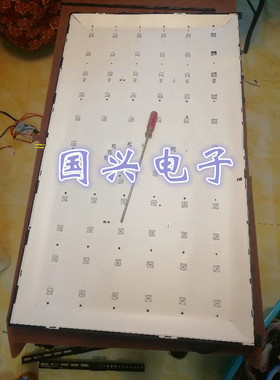 国兴电子